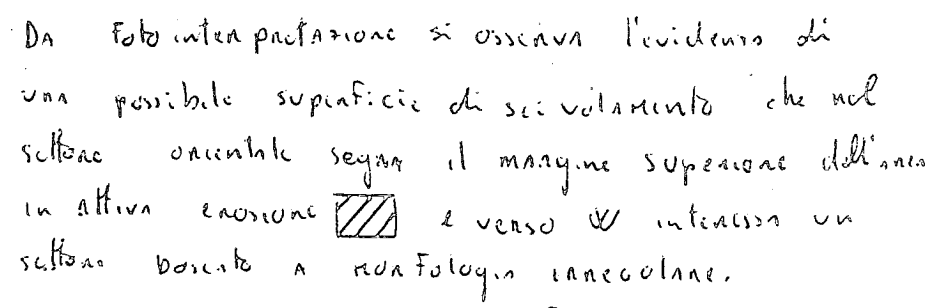 Da Fotointerpretazione si osserva l'evidenza di
una possibile superficie di scivolamento che nel
settore orientale segna il margine superiore dell'area
in attiva erosione e verso W interessa un
settore boscato a morfologia irregolare.